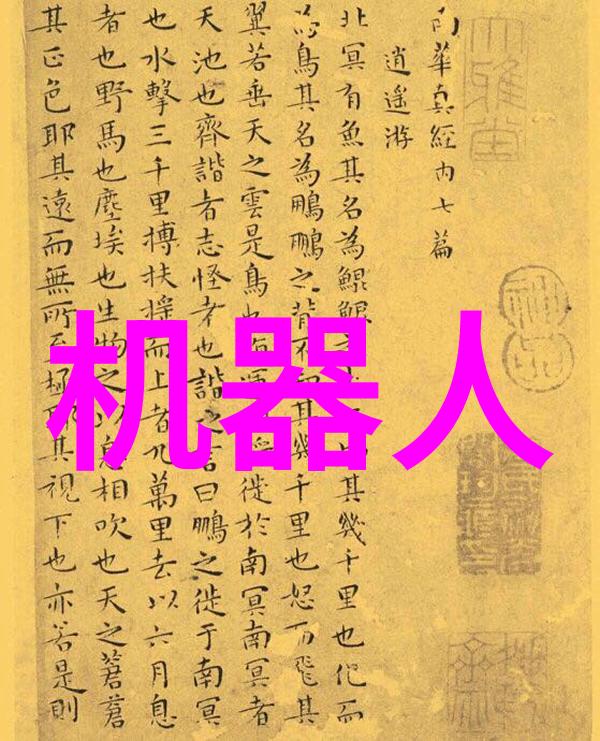 南華真經内七篇
逍遥游
北冥有魚其名為鯤鯤其幾千里也化而
為鳥其名為鵬鵬之背不其幾千里也怒而飛其
翼若垂天之雲是鳥也徙於南冥南冥者
天池也齊諧者志怪者也諧之言曰鵬之徙于南冥
也水擊三千里搏扶摇而上者九萬里去以六月息
者也野馬也塵埃也生物之以息相吹也天之蒼蒼
其正色耶其遠而無所至極耶其視下也亦若是則
机器人